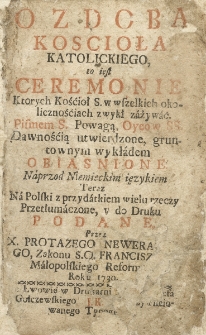 OZDOBA
KOSCIOŁA
KATOLICKIEGO,
to iest
CEREMONIE
Ktorych Kościoł S. w wszelkich oko-
licznościach zwykł záżywáć.
Pismem S. Powagą, Oycow SS.
Dawnością utwierdzone, grun-
townym wykłádem
OBIASNIONE
Naprzod Niemieckim ięzykiem
Teraz
Ná Polski z przydátkiem wielu rzeczy
Przetłumáczone, y do Druku
PODANE
Przez
X. PROTAZEGO NEWERA-
GO, Zakonu S.O. FRANCISZ
Máłopolskiego Reform
Roku 1739.
Lwowie w Drukarni
Gołczewskiego
wanego